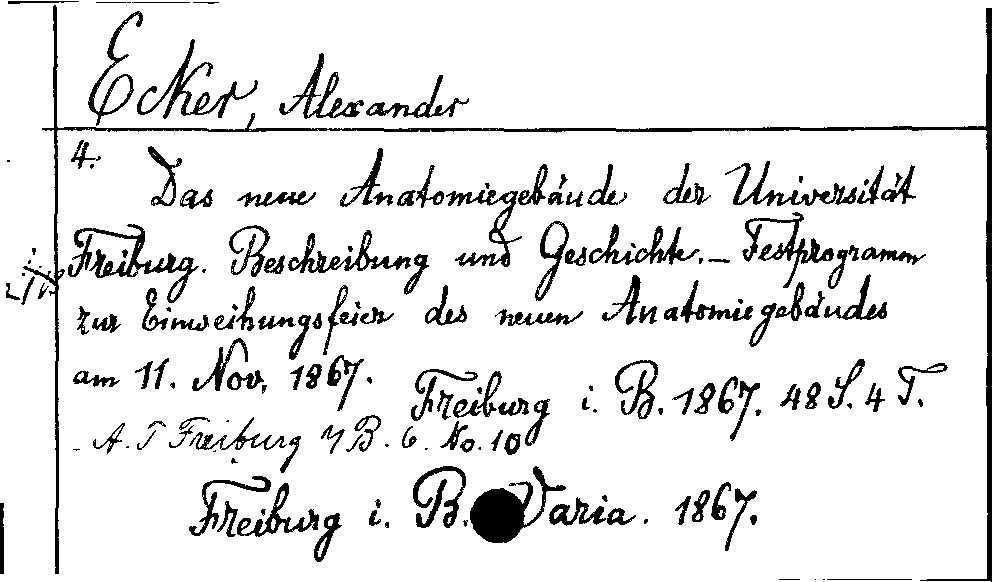 Ecker, Alexander
4.
Das neue Anatomiegebäude der Universität
Freiburg. Beschreibung und Geschichte. – Festprogramm
zur Einweihungsfeier des neuen Anatomiegebäudes
am 11. Nov. 1867.
Freiburg i. B. 1867. 48 S. 4 T.
A. T Freiburg B. 6. No. 10
Freiburg i. B. Varia. 1867.